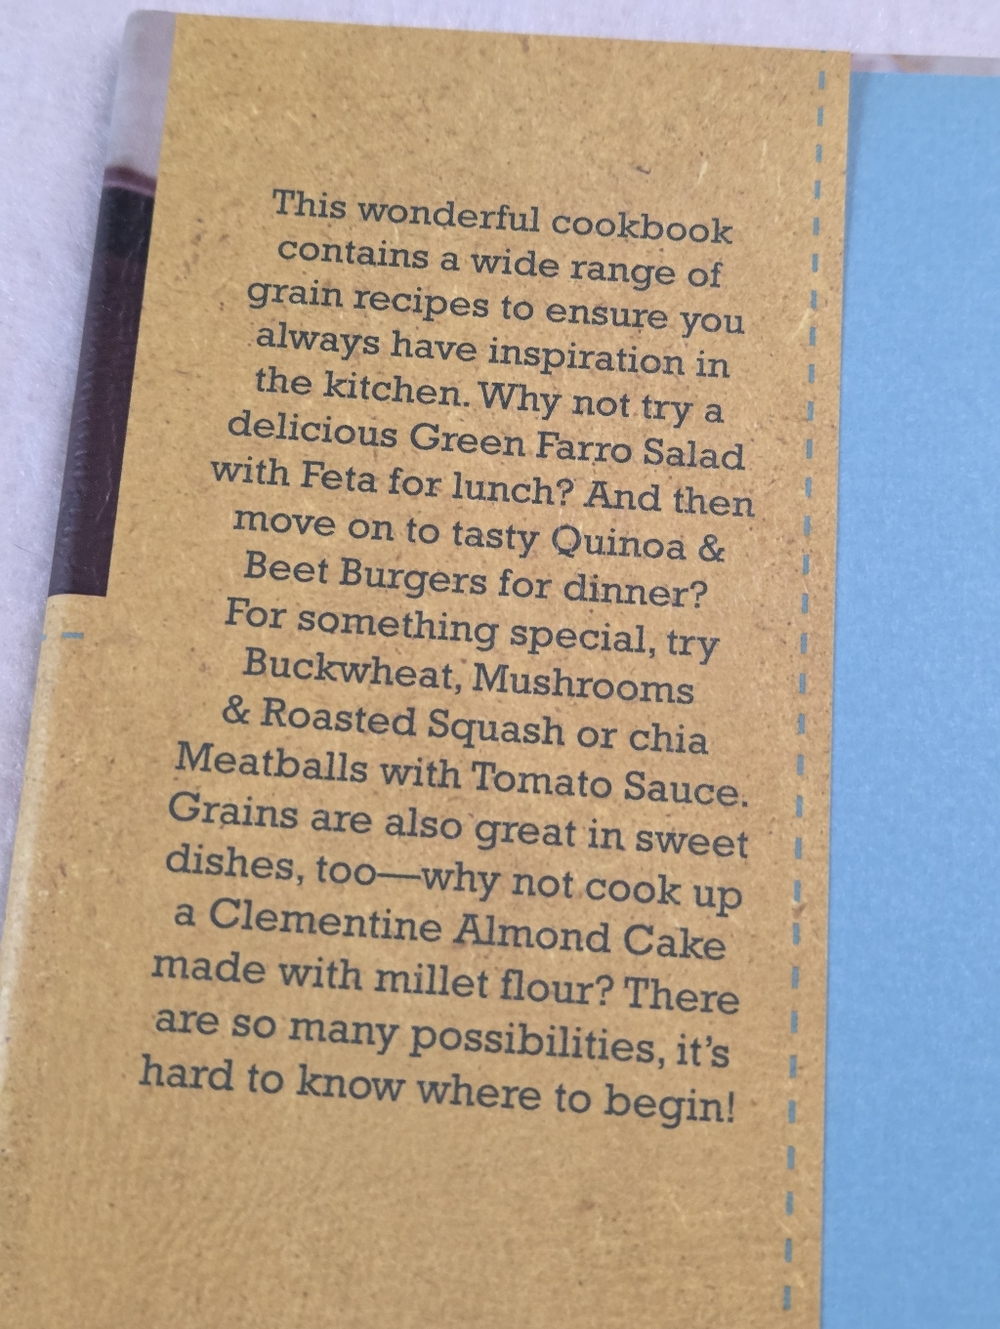 This wonderful cookbook
contains a wide range of
grain recipes to ensure you
always have inspiration in
the kitchen. Why not try a
delicious Green Farro Salad
with Feta for lunch? And then
move on to tasty Quinoa &
Beet Burgers for dinner?
For something special, try
Buckwheat, Mushrooms
& Roasted Squash or chia
Meatballs with Tomato Sauce.
Grains are also great in sweet
dishes, too—why not cook up
a Clementine Almond Cake
made with millet flour? There
are so many possibilities, it’s
hard to know where to begin!